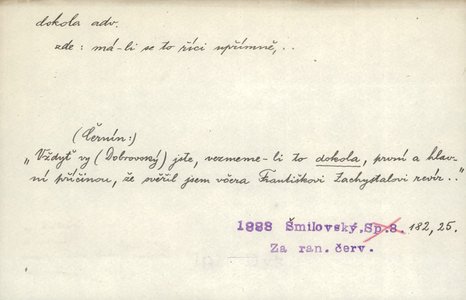 dokola adv.
zde : má-li se to říci upřímně, ..
(Černín:)
„Vždyť vy (Dobrovský) jste, vezmeme-li to dokola, první a hlav-
ní příčinou, že svěřil jsem včera Františkovi Zachystalovi revír..“
1888 Šmilovský, Sp. 8. 182, 25.
Za ran. červ.